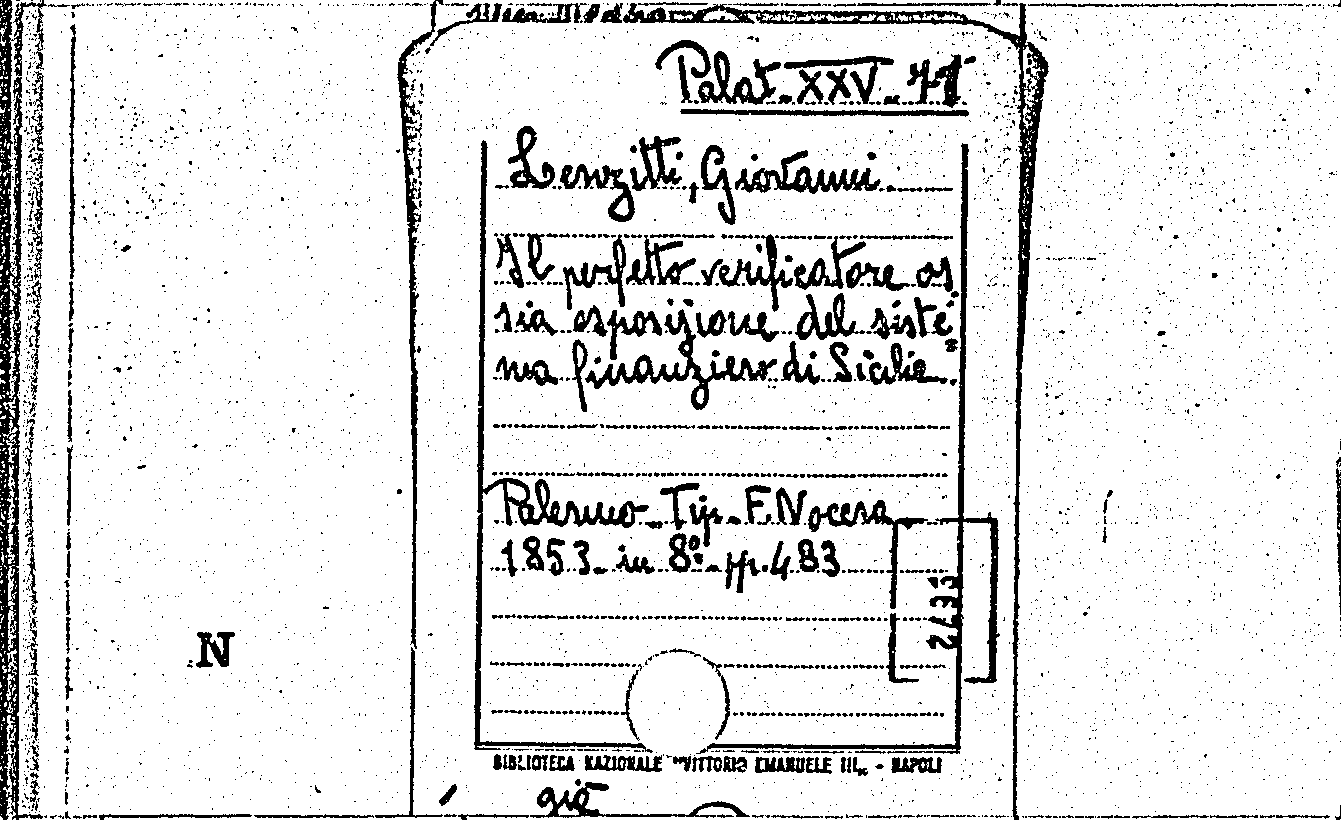 Palat. XXV. 71
Lenzitti, Giovanni.
Il perfetto verificatore os
sia esposizione del siste=
ma finanziero di Sicilia.
Palermo. Tip. F. Nocera
1853. in 8º. pp. 483
N
BIBLIOTECA NAZIONALE "VITTORIO EMANUELE III„ - NAPOLI